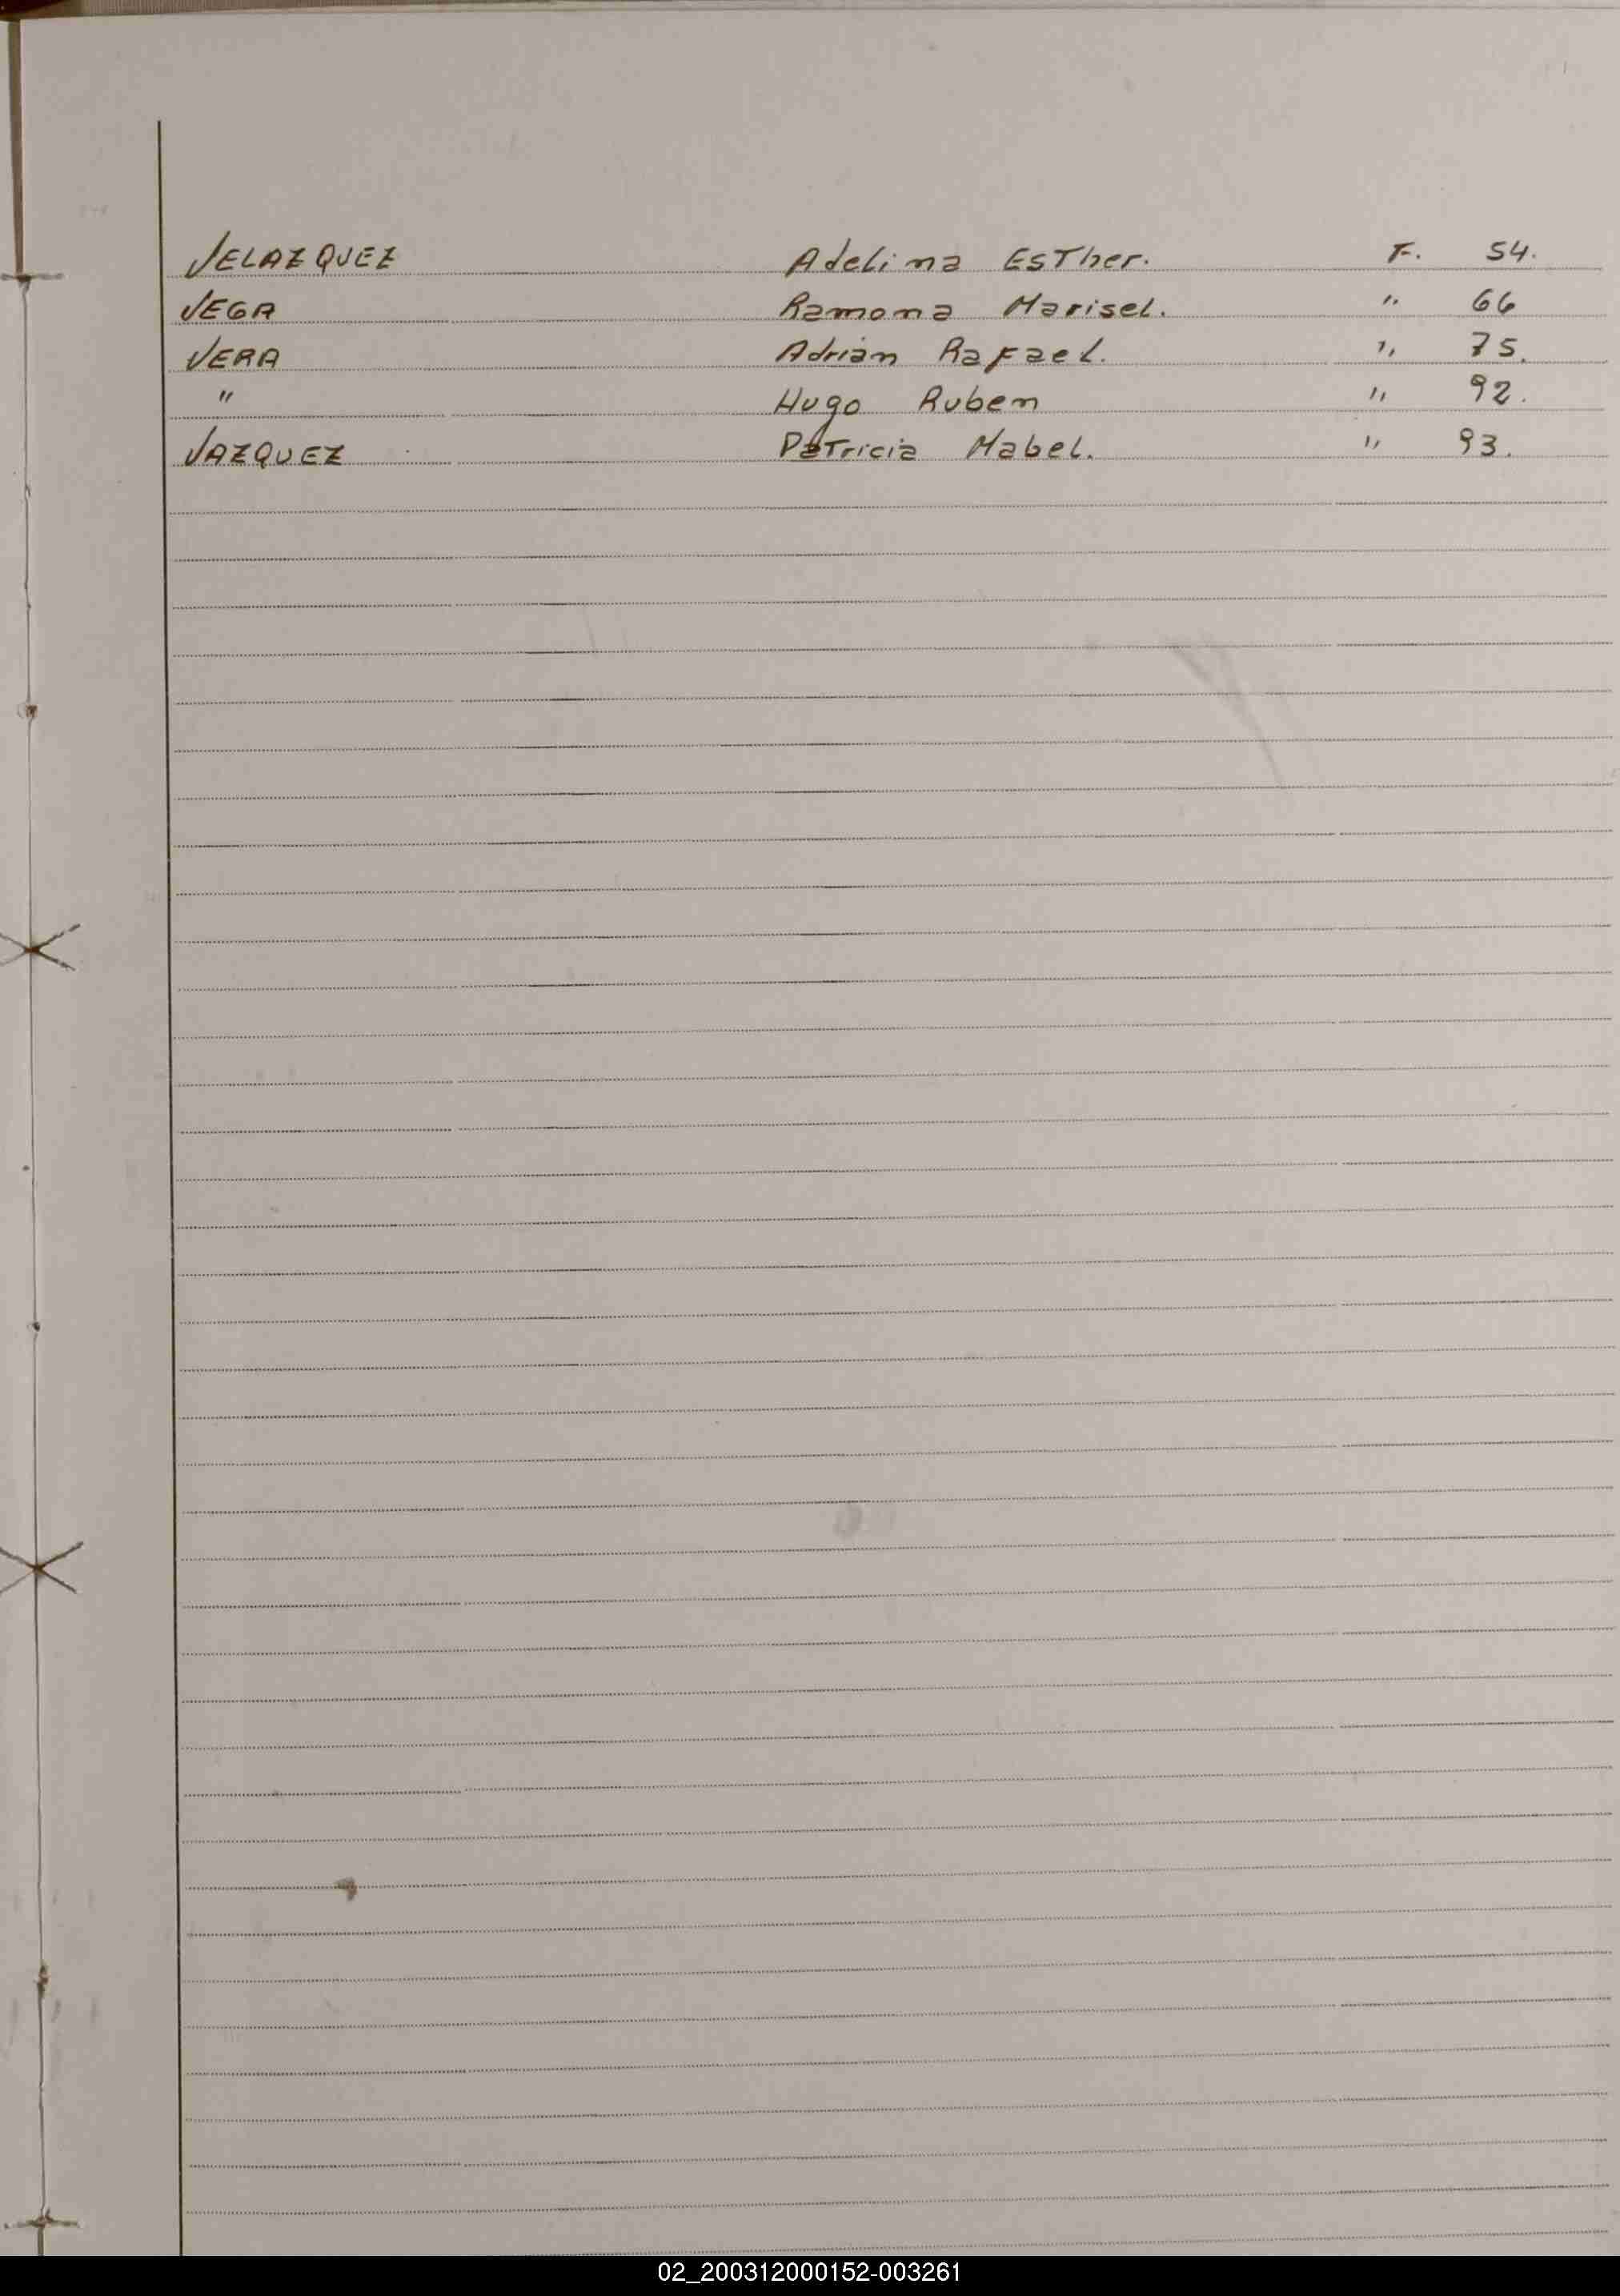 VELAZQUEZ Adelina Esther. F. 54.
VEGA Ramona Marisel. " 66
VERA Adrian Rafael. " 75.
" Hugo Ruben " 92.
VAZQUEZ Patricia Mabel. " 93.
02_200312000152-003261